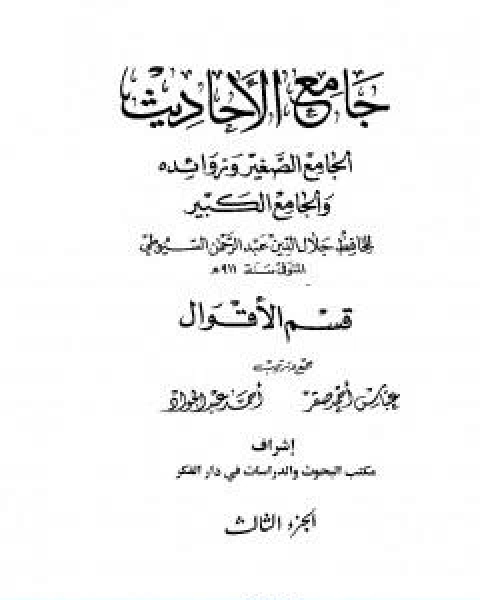 جَامِعُ الأَحَادِيْثِ
الجَامِعُ الصَّغِيْرُ وَزَوَائِدُه
وَالجَامِعُ الكَبِيْر
للحافظ جلال الدين عبد الرحمن السيوطي
المتوفى سنة ٩١١هـ
قسم الأقوال
جمع وترتيب
عباس أحمد صقر
أحمد عبد الجواد
إشراف
مكتب البحوث والدراسات في دار الفكر
الجزء الثالث